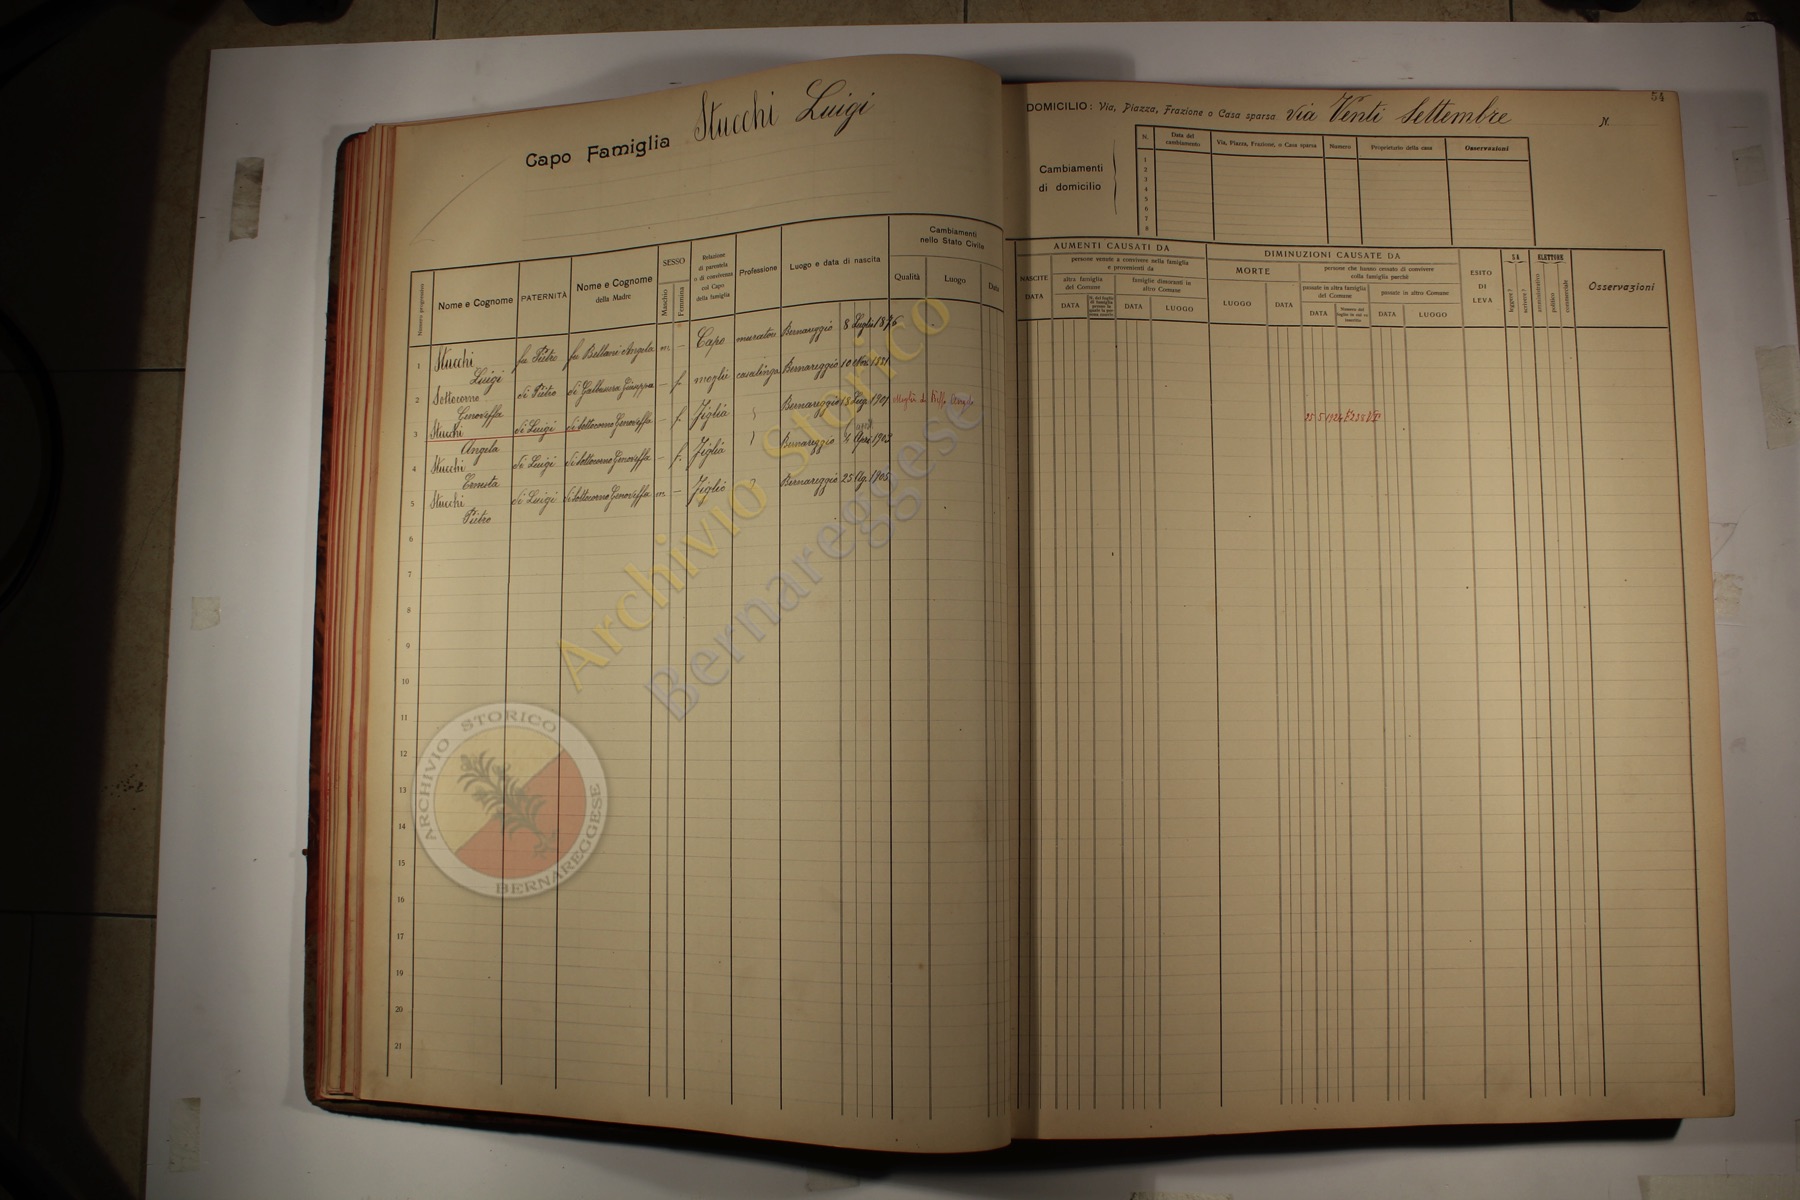 Capo Famiglia Stucchi Luigi
Numero progressivo
Nome e Cognome
PATERNITÀ
Nome e Cognome
della Madre
SESSO
Maschio
Femmina
Relazione
di parentela
o di convivenza
col Capo
della famiglia
Professione
Luogo e data di nascita
Cambiamenti
nello Stato Civile
Qualità
Luogo
Data
1 Stucchi fu Pietro fu Bellani Angela m - Capo muratore Bernareggio 8 Luglio 1876
Luigi
2 Sottocorno di Pietro di Galbussera Giuseppa - f. moglie casalinga Bernareggio 10 1881
Genoveffa
3 Stucchi di Luigi di Sottocorno Genoveffa - f. Figlia Bernareggio 18 1901 Moglie di
Angela
4 Stucchi di Luigi di Sottocorno Genoveffa - f. Figlia Bernareggio 4 Apri. 1903
Ernesta
5 Stucchi di Luigi di Sottocorno Genoveffa m - Figlio Bernareggio 25 1905
Pietro
6
7
8
9
10
11
12
13
14
15
16
17
18
19
20
21
54
DOMICILIO: Via, Piazza, Frazione o Casa sparsa via Venti Settembre N.
Cambiamenti
di domicilio
N.
Data del
cambiamento
Via, Piazza, Frazione, o Casa sparsa
Numero
Proprietario della casa
Osservazioni
1
2
3
4
5
6
7
8
AUMENTI CAUSATI DA
NASCITE
DATA
persone venute a convivere nella famiglia
e provenienti da
altra famiglia
del Comune
famiglie dimoranti in
altro Comune
DATA
DATA
LUOGO
DIMINUZIONI CAUSATE DA
MORTE
LUOGO
DATA
persone che hanno cessato di convivere
colla famiglia perchè
passate in altra famiglia
del Comune
passate in altro Comune
DATA
DATA
LUOGO
ESITO
DI
LEVA
SA
leggere?
scrivere?
ELETTORE
amministrativo
politico
commerciale
Osservazioni
25-5-1924 F. 238 VI°
Archivio Storico
Bernareggese
ARCHIVIO STORICO
BERNAREGGESE